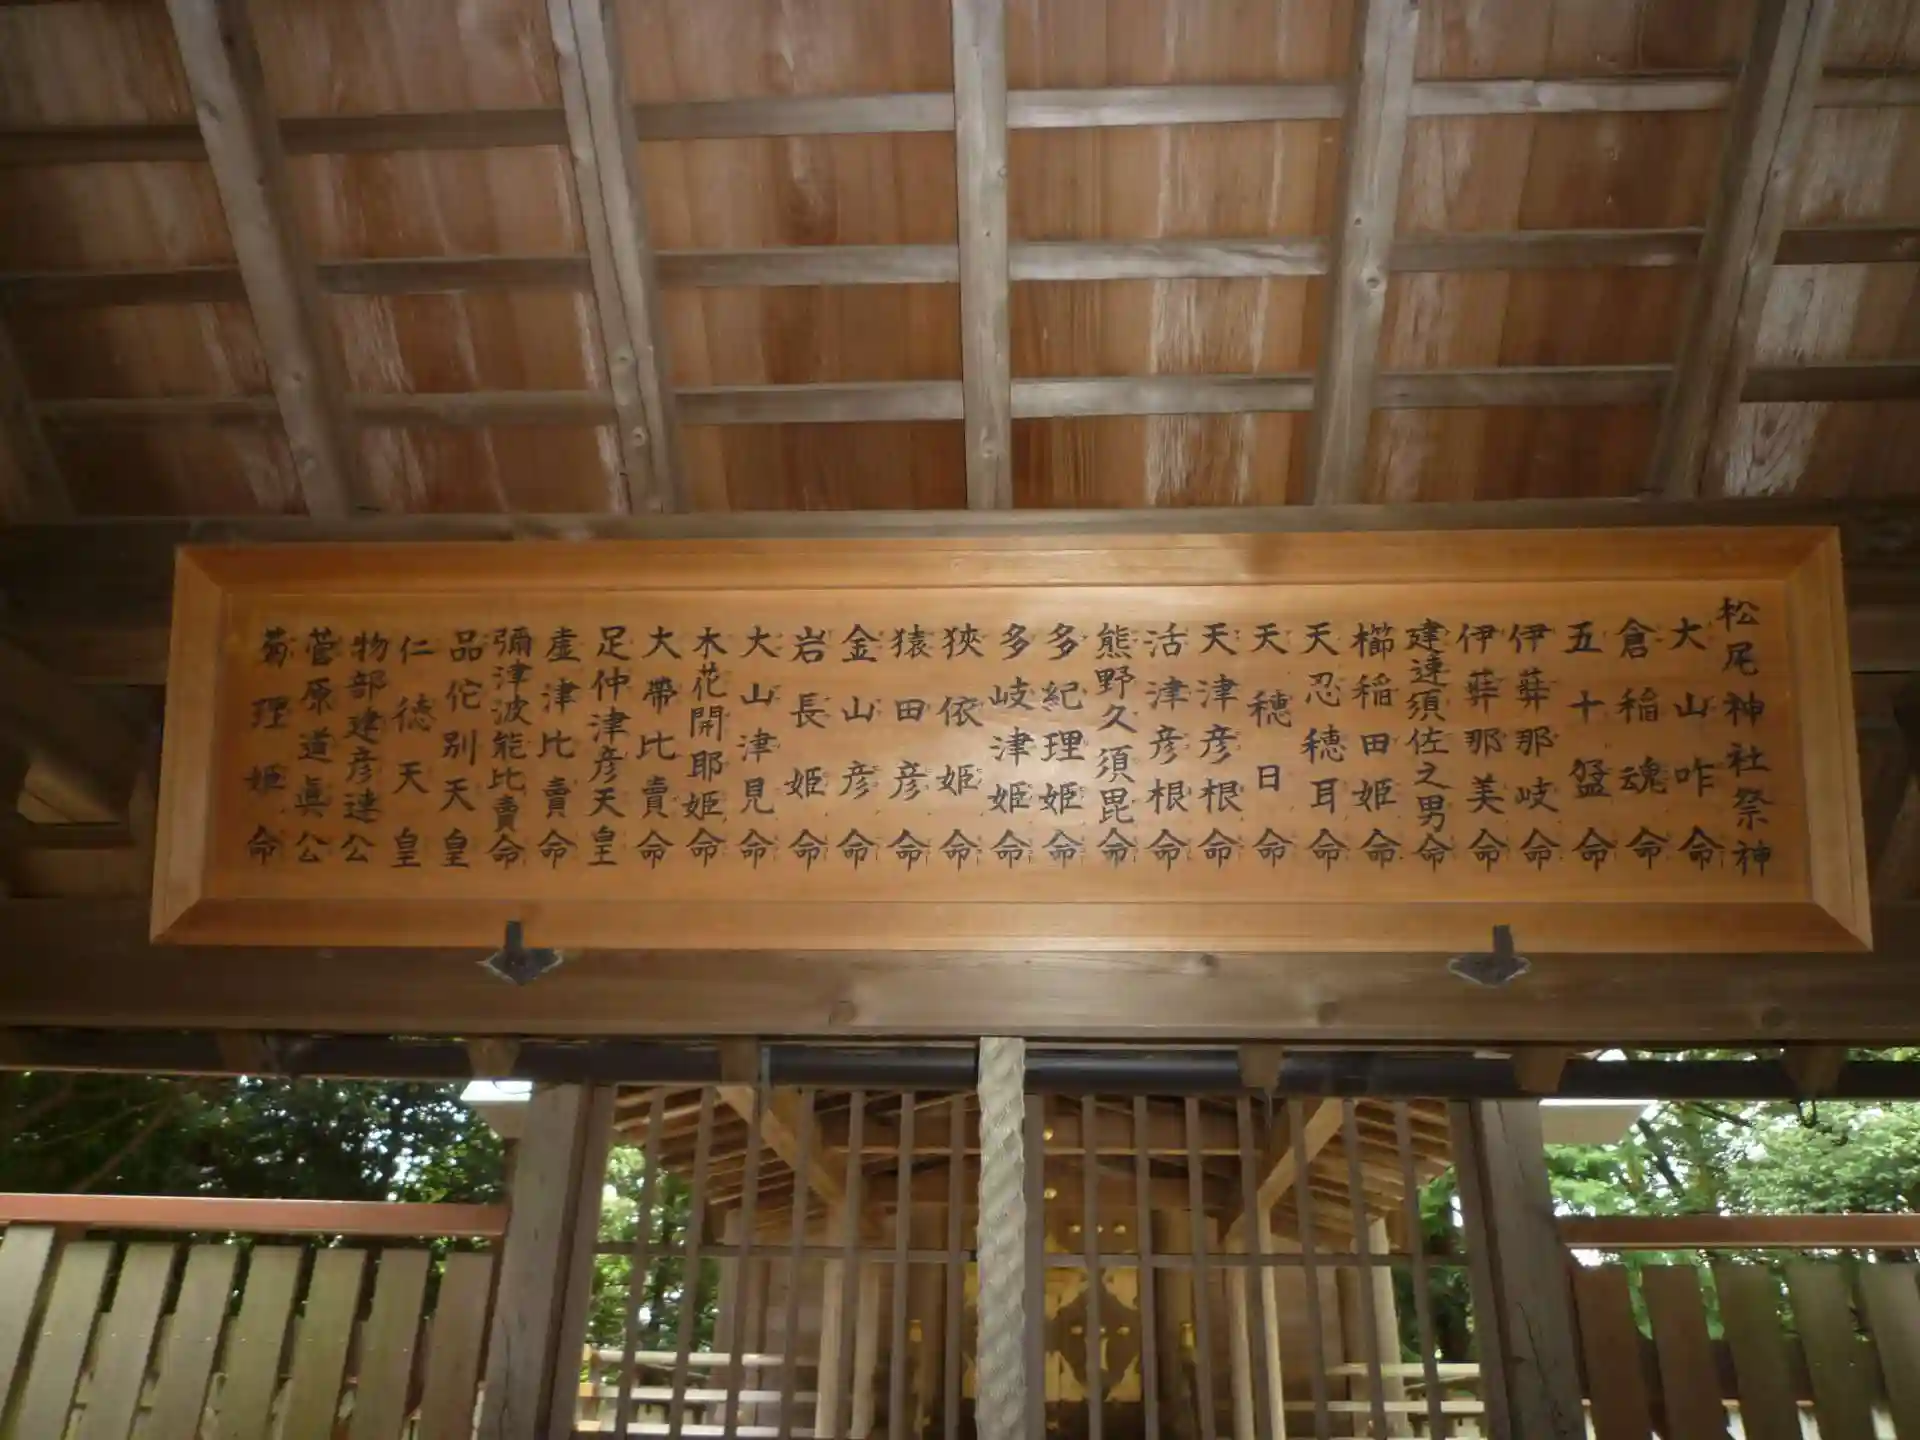 松尾神社祭神
大山咋命
倉稲魂命
五十猛命
伊弉那岐命
伊弉那美命
建速須佐之男命
櫛稲田姫命
天忍穂耳命
天穂日命
天津彦根命
活津彦根命
熊野久須毘命
多紀理姫命
多岐津姫命
狭依姫命
猿田彦命
金山彦命
岩長姫命
大山津見命
木花開耶姫命
大帶比賣命
足仲津彦天皇
虚津比賣命
彌津波能比賣命
品佗別天皇
仁徳天皇
物部建彦連公
菅原道眞公
菊理姫命